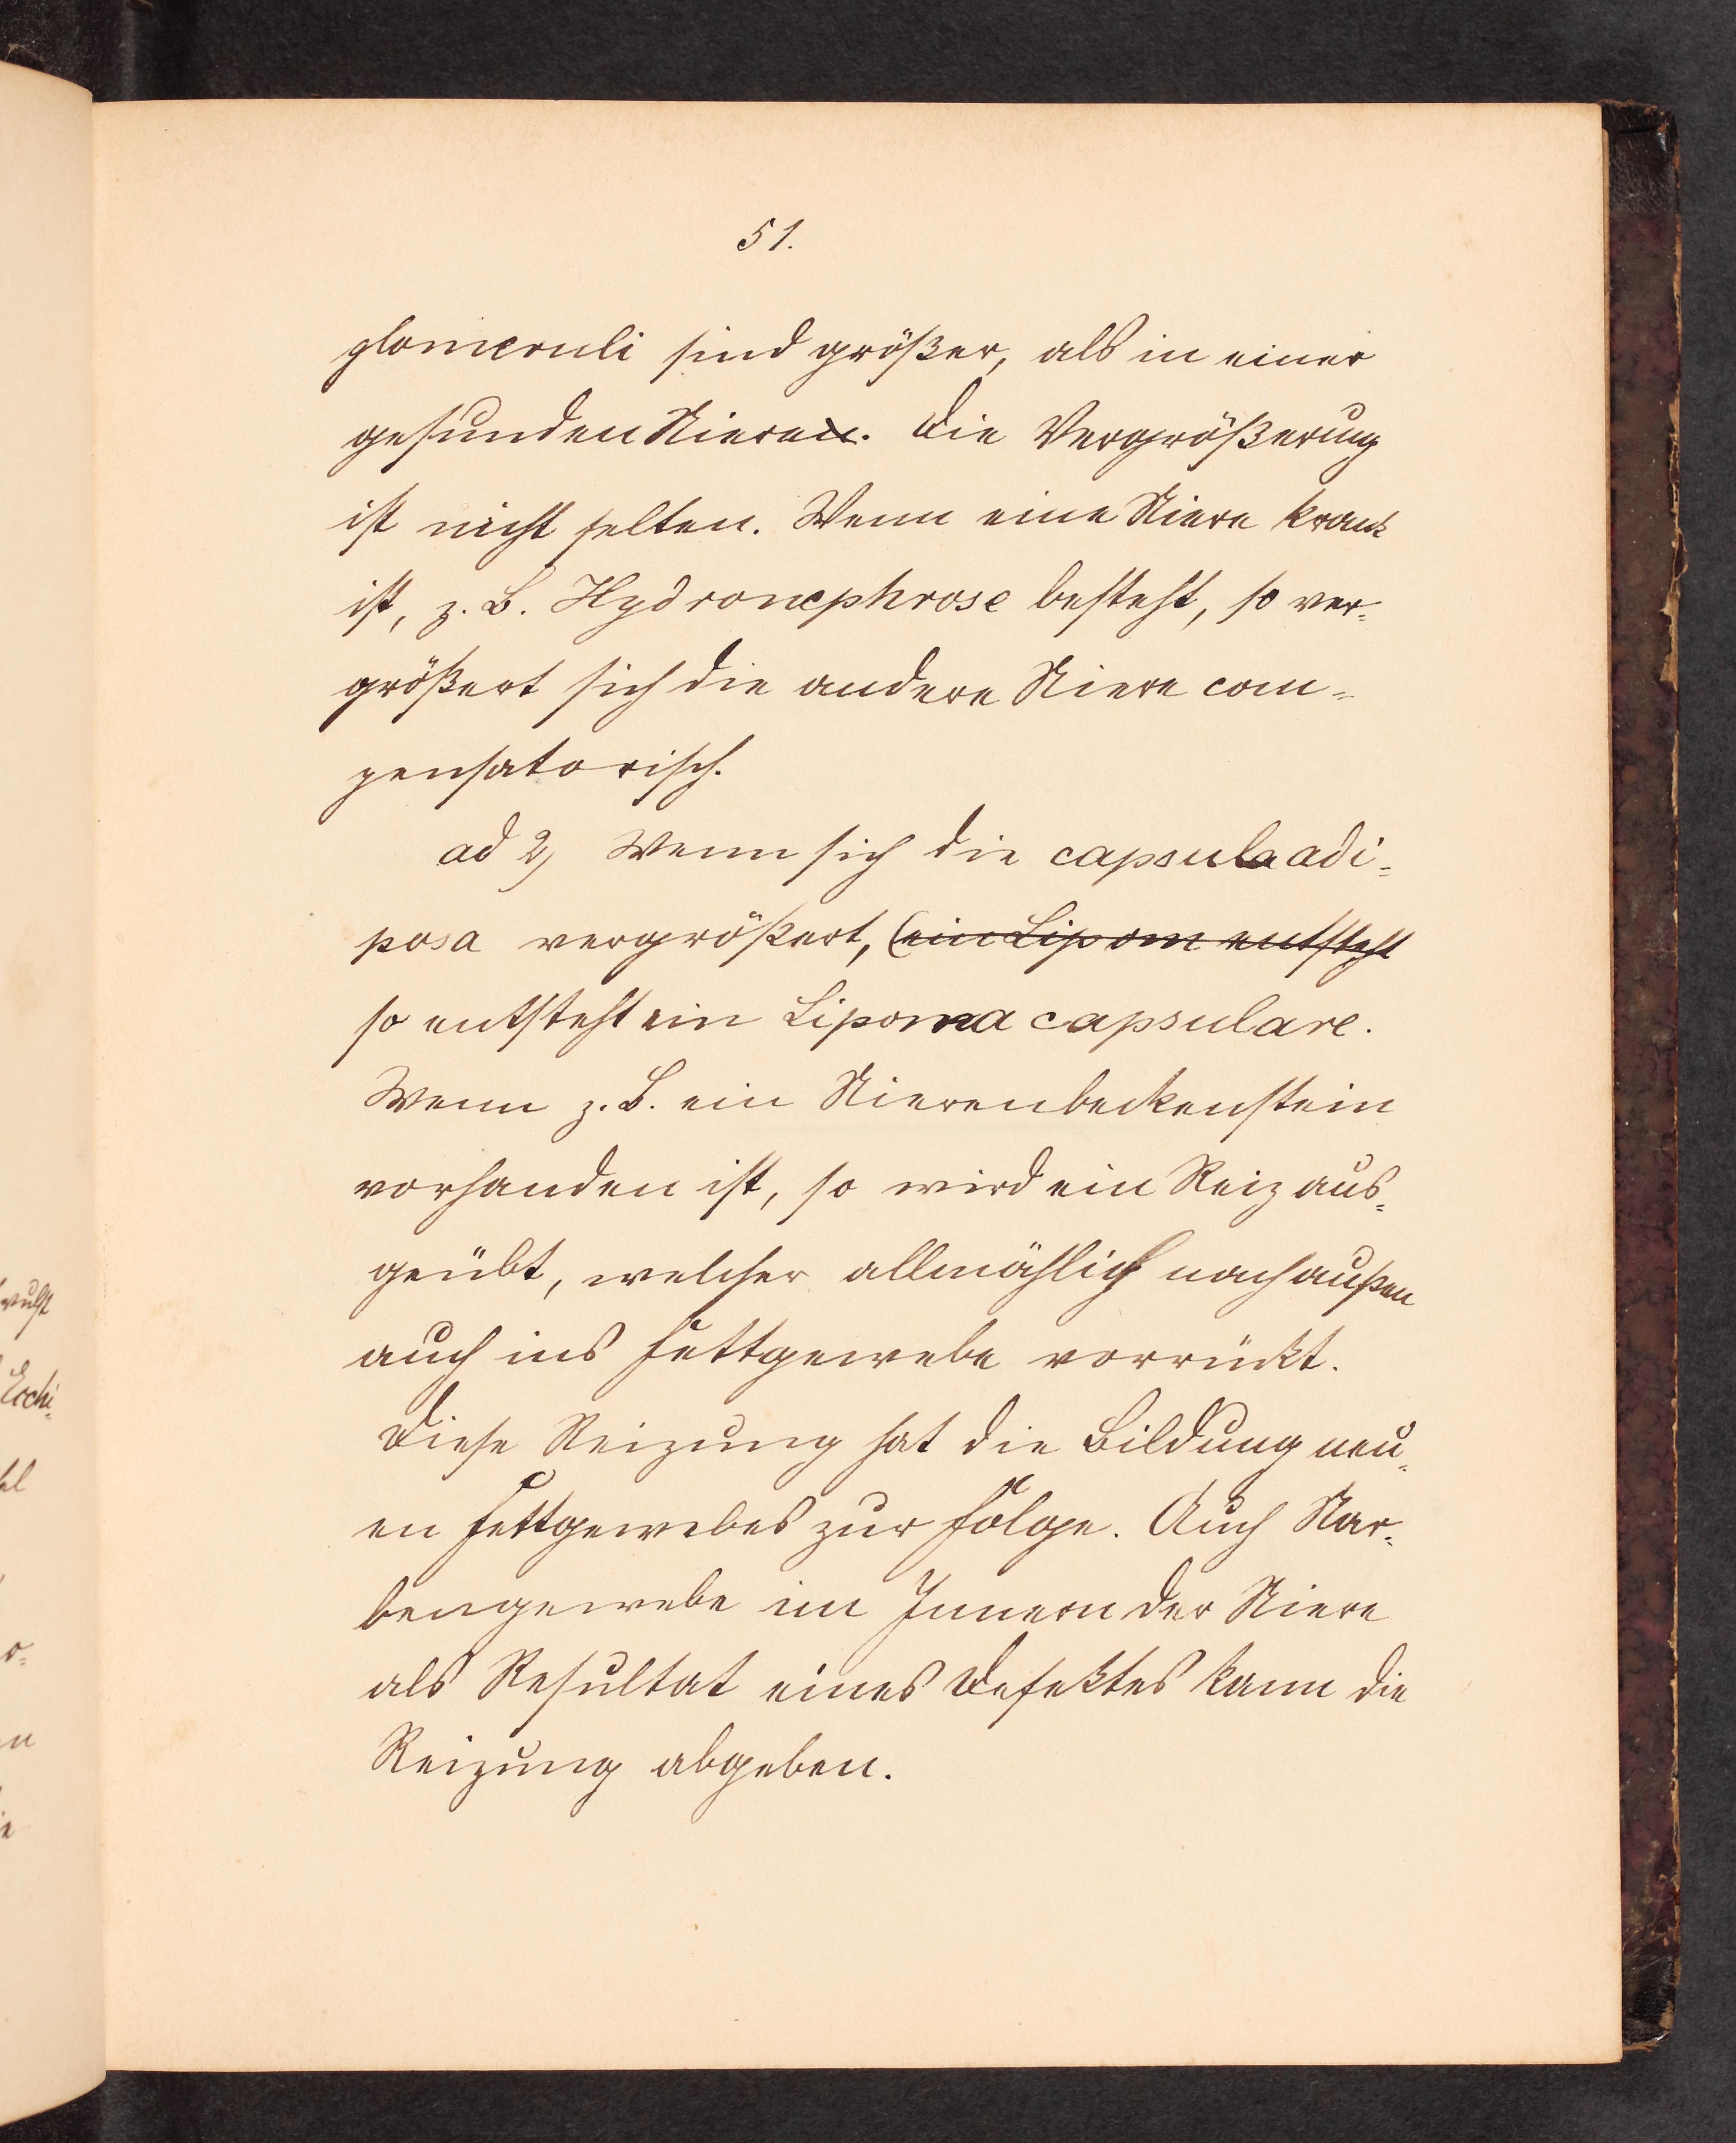 51.
glomeruli sind größer, als in einer
gesunden Niere. Die Vergrößerung
ist nicht selten. Wenn eine Niere krank
ist, z. B. Hydronephrose besteht, so ver=
größert sich die andere Niere com=
pensatorisch.
ad 2) Wenn sich die capsula adi=
posa vergrößert, (ein Lipom entsteht
so entsteht ein Lipoma capsulare.
Wenn z. B. ein Nierenbeckenstein
vorhanden ist, so wird ein Reiz aus=
geübt, welcher allmählich nach außen
auch ins Fettgewebe vorrückt.
Diese Reizung hat die Bildung neu=
en Fettgewebes zur Folge. Auch Nar=
bengewebe im Innern der Niere
als Resultat eines Defektes kann die
Reizung abgeben.